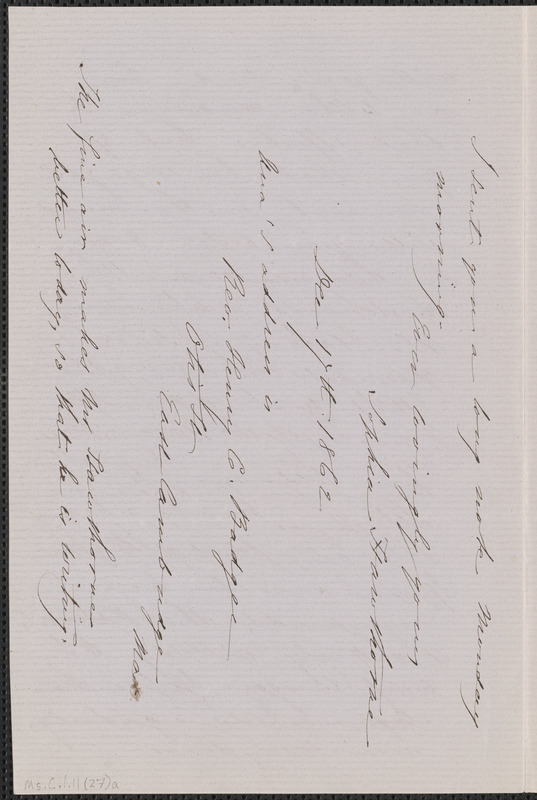 I sent you a long note Monday
morning.
Ever lovingly yours,
Sophia Hawthorne
Dec 17th. 1862
Una's address is
Rev. Henry C. Badger
Otis St
East Cambridge
Mass
The fine air makes Mr Hawthorne
better today, so that he is writing.
Ms.C.1.11(27)a